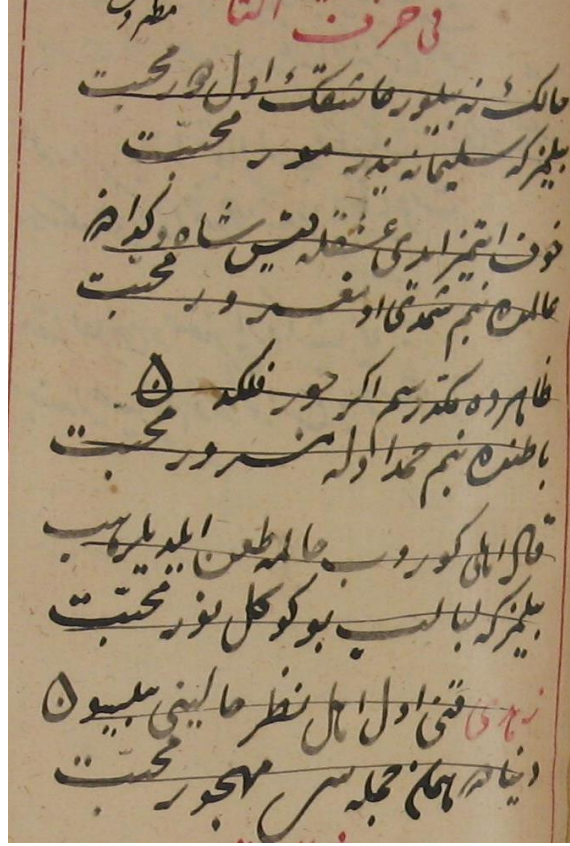 فی حرف التا
حالك نه بیلور عاشقك اول هر محبت
بیلمز كه سلیمانه ندر مور محبت
خوف ایتمز ایدی عشقله قیس شاه و كدادن
عالمده بنم شمدی او مغرور محبت
ظاهرده مكدرسم اكر جور فلكدن
باطنده بنم حمد اوله مسرور محبت
قال اهلی كوروب حالمه طعن ایلدیلر هپ
بیلمز كه لبالب بو كوكل نور محبت
زهدی قنی اول اهل نظر حالینی بیلسون
دنیاده همان جمله سی مهجور محبت